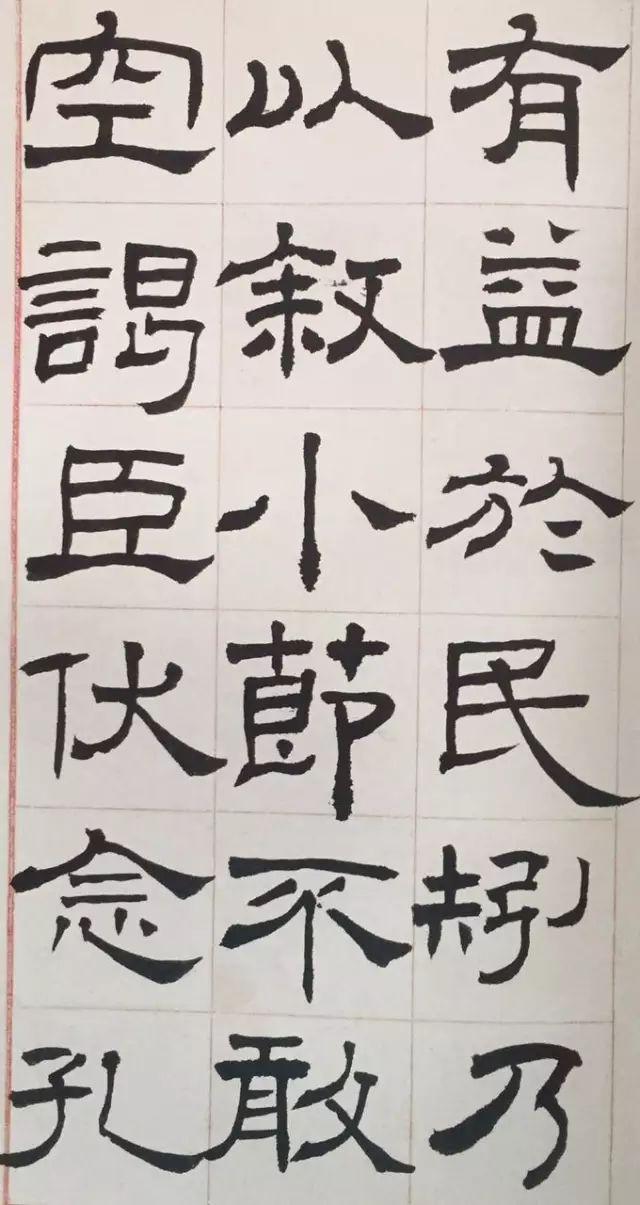 有益於民矧乃
以敘小節不敢
空謁臣伏念孔